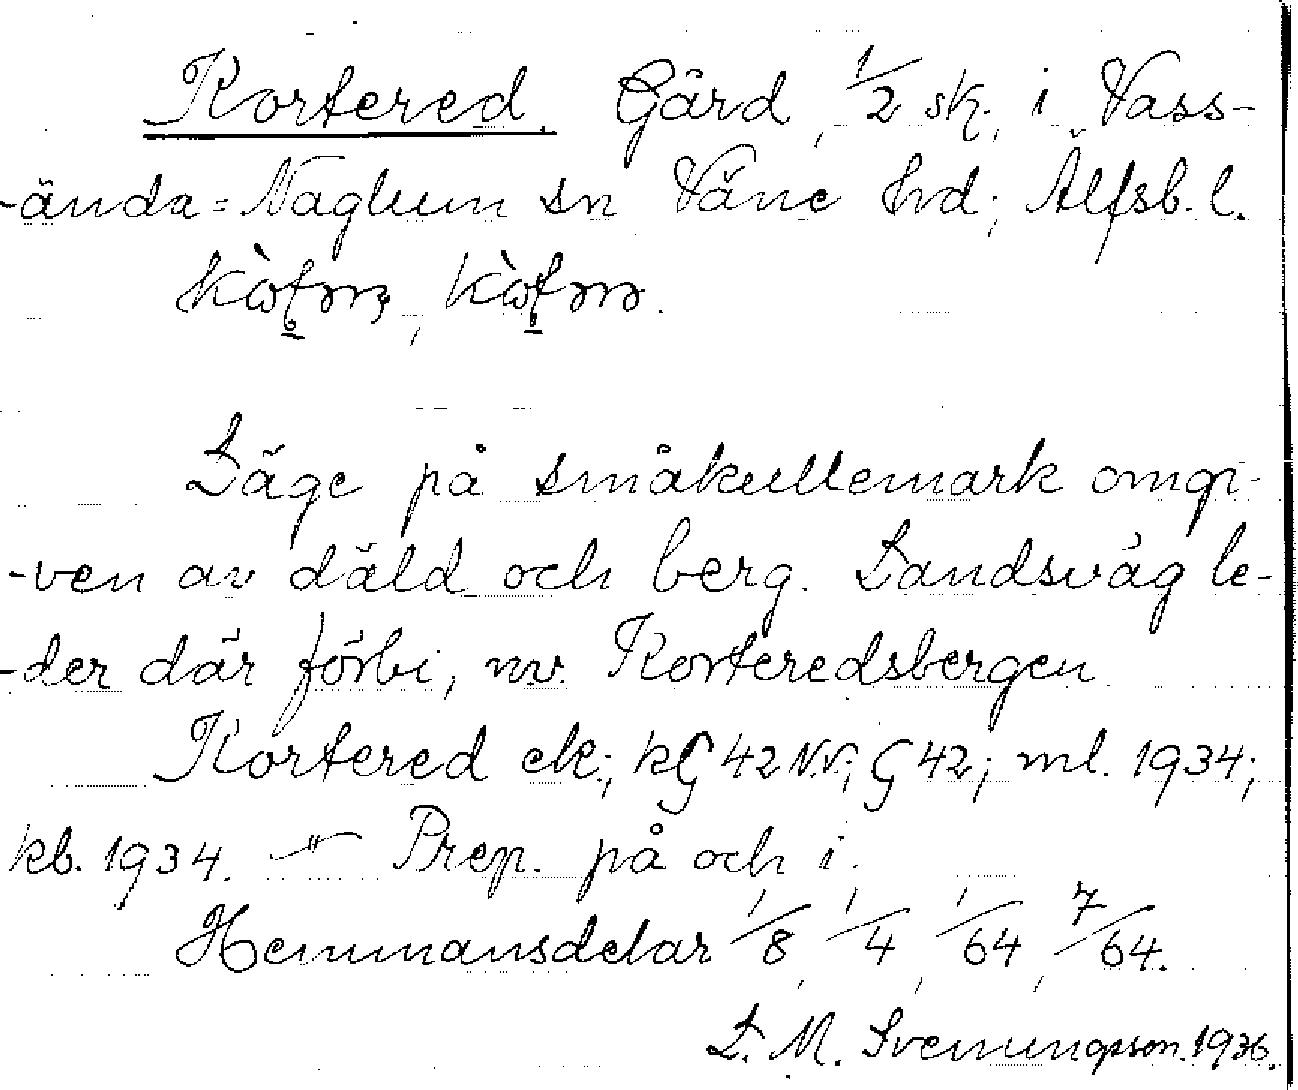 Kortered. Gård, 1/2 sk., i Väss-
-ända=Naglum sn Väne hd; Älfsb. l.
Läge på småkullemark omgi-
-ven av däld och berg. Landsväg le-
-der där förbi, nv. Korteredsbergen
Kortered ek.; kG 42 N.V.; G 42; ml. 1934;
kb. 1934. —"— Prep. på och i.
Hemmansdelar 1/8, 1/4, 1/64, 7/64.
L. M. Svenungsson. 1936.